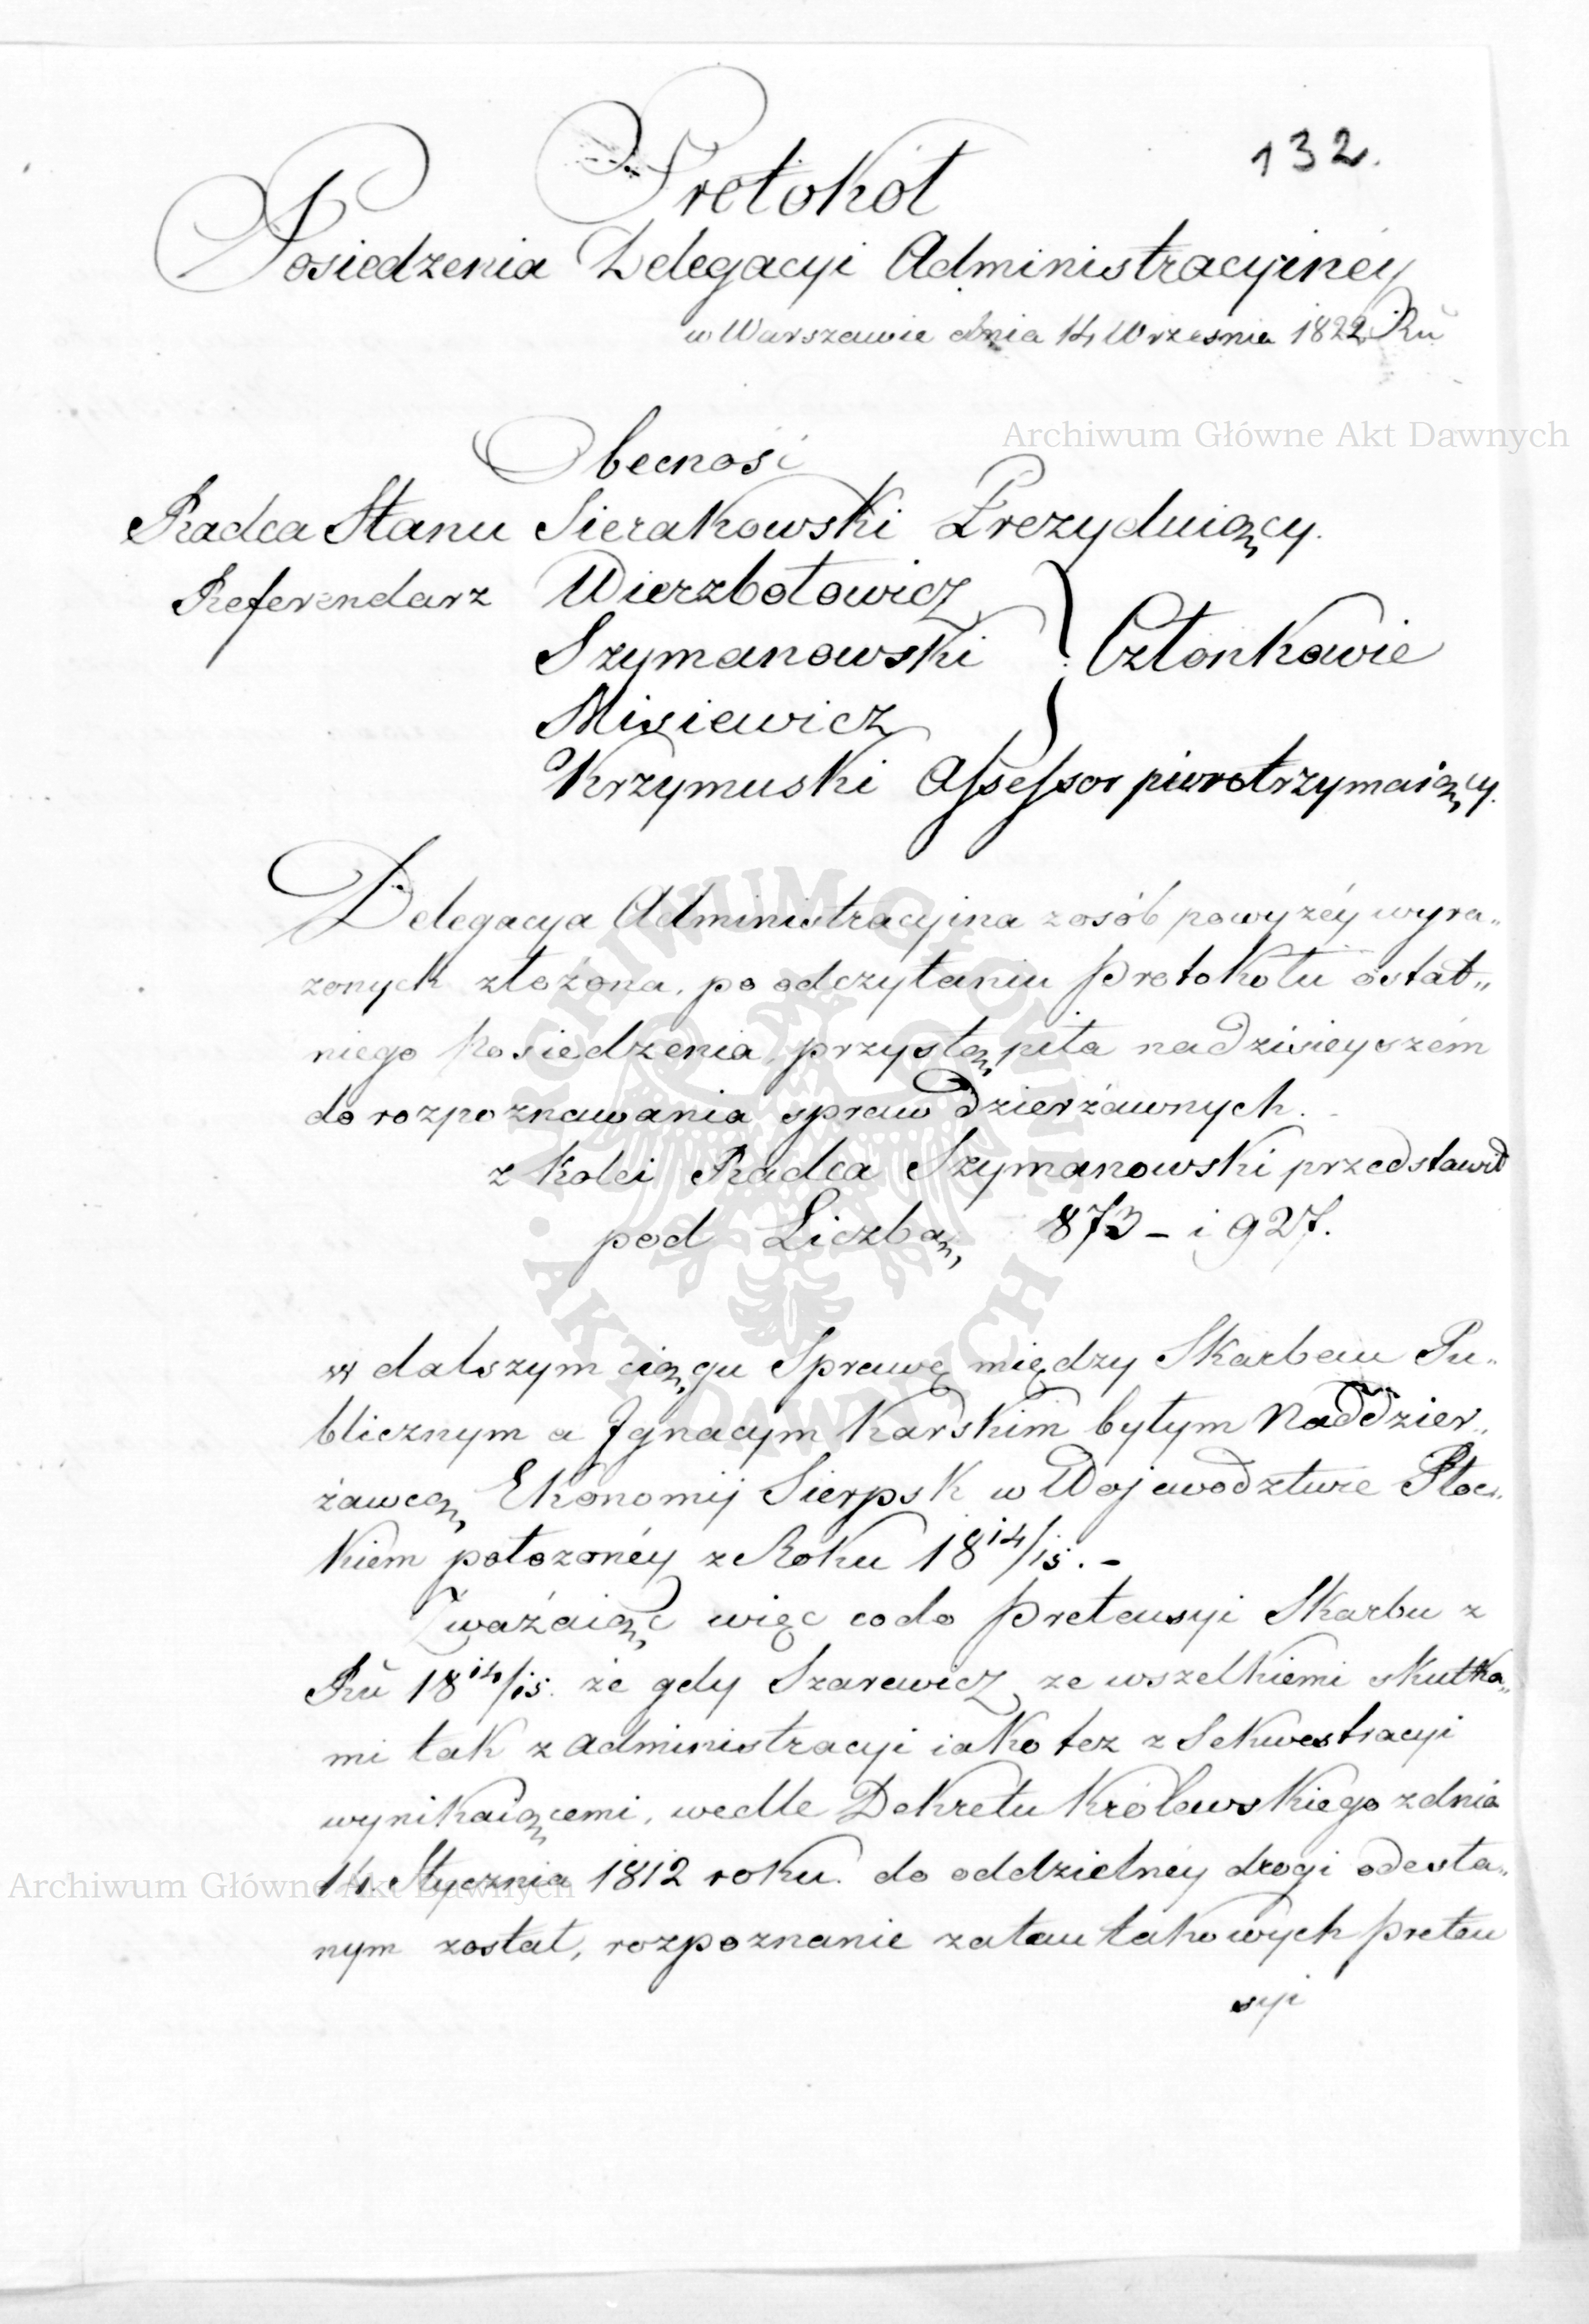 132.
Protokół
Posiedzenia Delegacyi Administracyinéy
w Warszawie dnia 14 Wrzesnia 1822 Rũ
Archiwum Główne Akt Dawnych
Obecność
Radca Stanu Sierakowski Prezyduiący.
Referendarz Wierzbołowicz
Szymanowski } Członkowie
Misiewicz
Krzymuski Assessor piorotrzymaiący.
Delegacya Administracyina z osób powyżéy wyra„
żonych złożona, po odczytaniu protokołu ostat„
niego Posiedzenia, przystąpiła na dzisieyszém
do rozpoznawania spraw dzierżawnych.
z Kolei Radca Szymanowski przedstawił
pod Liczbą 873 – i 927.
ARCHIWUM GŁÓWNE · AKT DAWNYCH ·
w dalszym ciągu Sprawę między Skarbem Pu„
blicznym a Jgnacym Karskim byłym Naddzier„
żawcą Ekonomij Sierpsk w Wojewodztwie Płoc„
kiem położonéy z Roku 18 14/15. –
Zważaiąc więc co do pretensyi Skarbu z
Rũ 18 14/15. że gdy Szarewicz ze wszelkiemi skutka„
mi tak z administracyi iako tez z Sekwestracyi
wynikaiącemi, wedle Dekretu Królewskiego z dnia
14. Stycznia 1812 roku. do oddzielnéy drogi odesła„
Archiwum Główne Akt Dawnych
nym został, rozpoznanie zatem takowych preten
syi